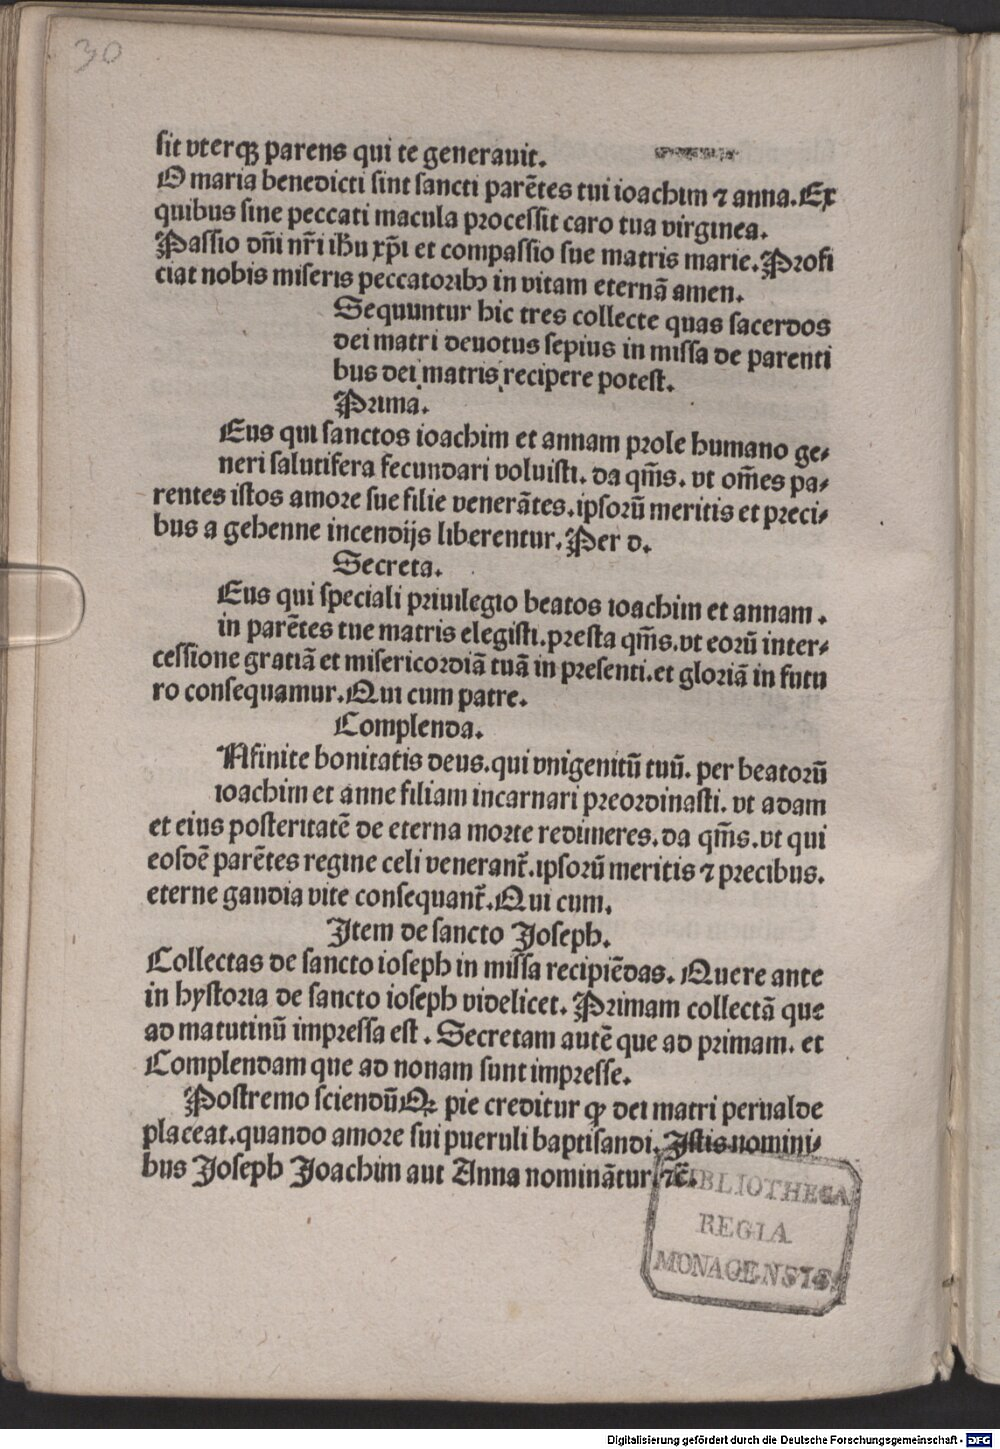 30
sit vterqꝫ parens qui te generauit.
O maria benedicti sint sancti parētes tui ioachim ⁊ anna. Ex
quibus sine peccati macula processit caro tua virginea.
Passio dn̄i nr̄i ihū xp̄i et compassio sue matris marie. Profi
ciat nobis miseris peccatoribꝰ in vitam eternā amen.
Sequuntur hic tres collecte quas sacerdos
dei matri deuotus sepius in missa de parenti
bus dei matris recipere potest.
Prima.
Eus qui sanctos ioachim et annam prole humano ge⸗
neri salutifera fecundari voluisti. da qm̄s. vt om̄es pa⸗
rentes istos amore sue filie venerātes. ipsorū meritis et preci⸗
bus a gehenne incendijs liberentur. Per d.
Secreta.
Eus qui speciali priuilegio beatos ioachim et annam.
in parētes tue matris elegisti. presta qm̄s. vt eorū inter⸗
cessione gratiā et misericordiā tuā in presenti. et gloriā in futu
ro consequamur. Qui cum patre.
Complenda.
Nfinite bonitatis deus. qui vnigenitū tuū. per beatorū
ioachim et anne filiam incarnari preordinasti. vt adam
et eius posteritatē de eterna morte redimeres. da qm̄s. vt qui
eosdē parētes regine celi venerant̄. ipsorū meritis ⁊ precibus.
eterne gaudia vite consequant̄. Qui cum.
Item de sancto Joseph.
Collectas de sancto ioseph in missa recipiēdas. Quere ante
in hystoria de sancto ioseph videlicet. Primam collectā que
ad matutinū impressa est. Secretam autē que ad primam. et
Complendam que ad nonam sunt impresse.
Postremo sciendū Qꝛ pie creditur ꝙ dei matri perualde
placeat. quando amore sui pueruli baptisandi. Istis nomini⸗
bus Joseph Joachim aut Anna nominātur ⁊c̄.
BIBLIOTHECA
REGIA
MONACENSIS.
Digitalisierung gefördert durch die Deutsche Forschungsgemeinschaft - DFG